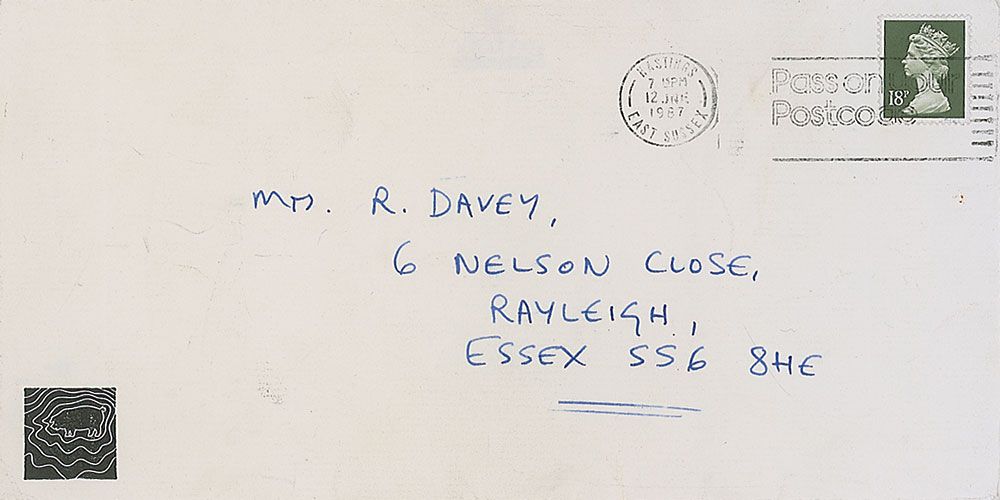 HASTINGS
7 PM
12 JNE
1987
EAST SUSSEX
Pass on your
Postcode
18P
Mrs. R. DAVEY,
6 NELSON CLOSE,
RAYLEIGH,
ESSEX SS6 8HE